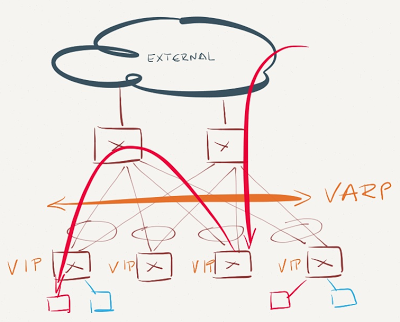 EXTERNAL
VARP
VIP VIP VIP VIP